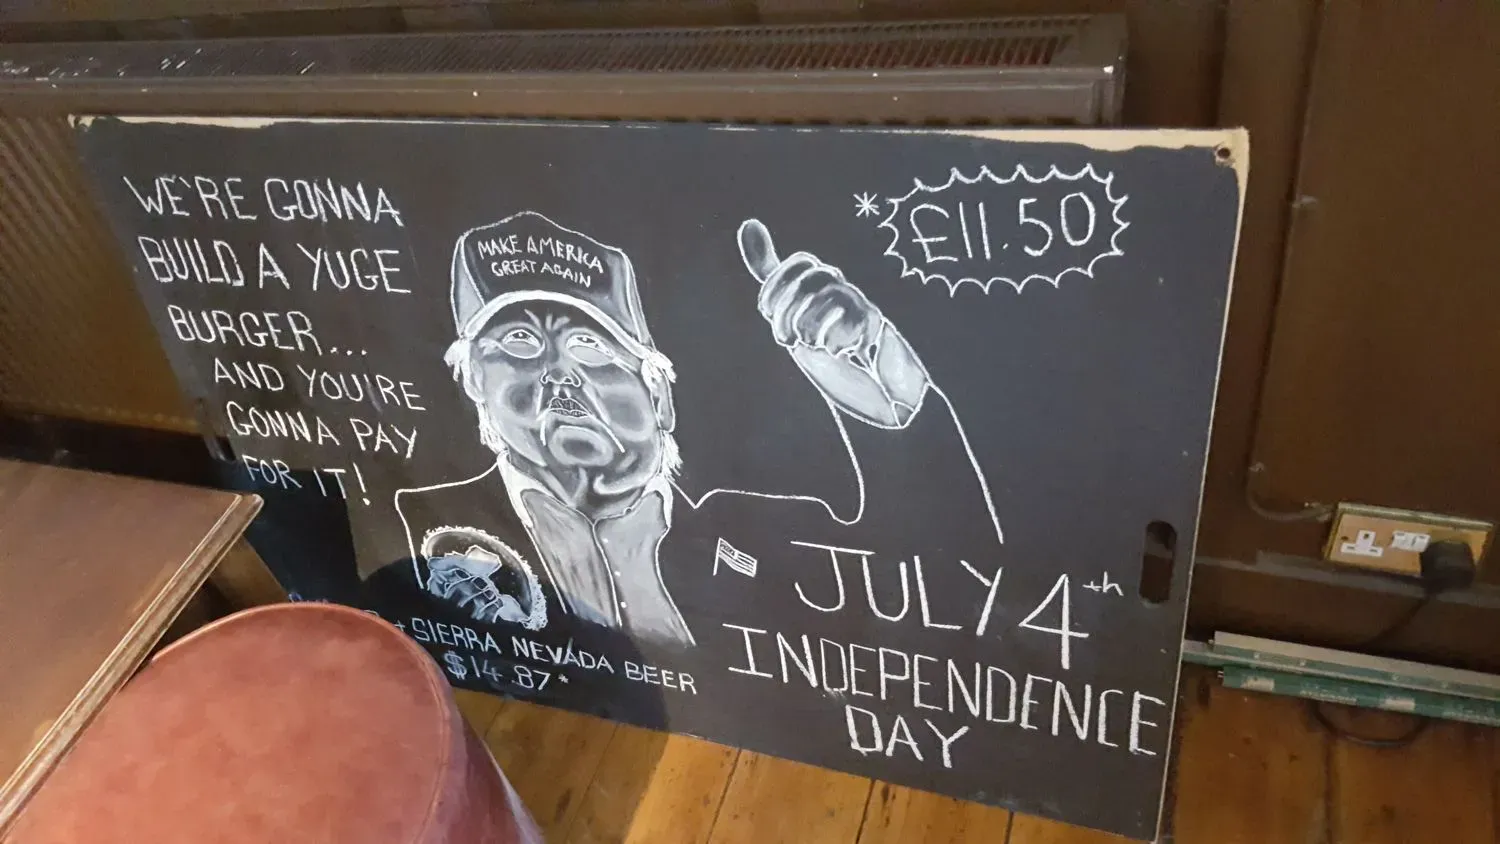 WE'RE GONNA
BUILD A YUGE
BURGER...
AND YOU'RE
GONNA PAY
FOR IT!
MAKE AMERICA
GREAT AGAIN
*£11.50
+ SIERRA NEVADA BEER
$14.87*
JULY 4th
INDEPENDENCE
DAY